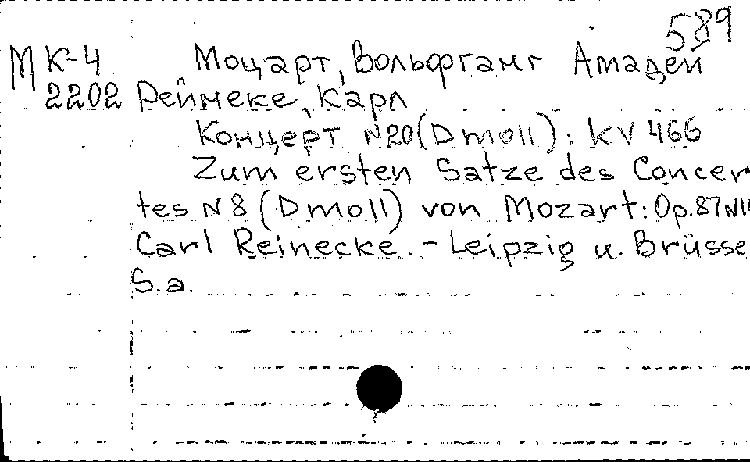 589
М К-4 Моцарт, Вольфганг Амадей
2202 Рейнеке, Карл
Концерт N20 (D moll): KV 466
Zum ersten Satze des Concer
tes N 8 (D moll) von Mozart: Op.87 N11
Carl Reinecke. - Leipzig u. Brüsse
S.a.